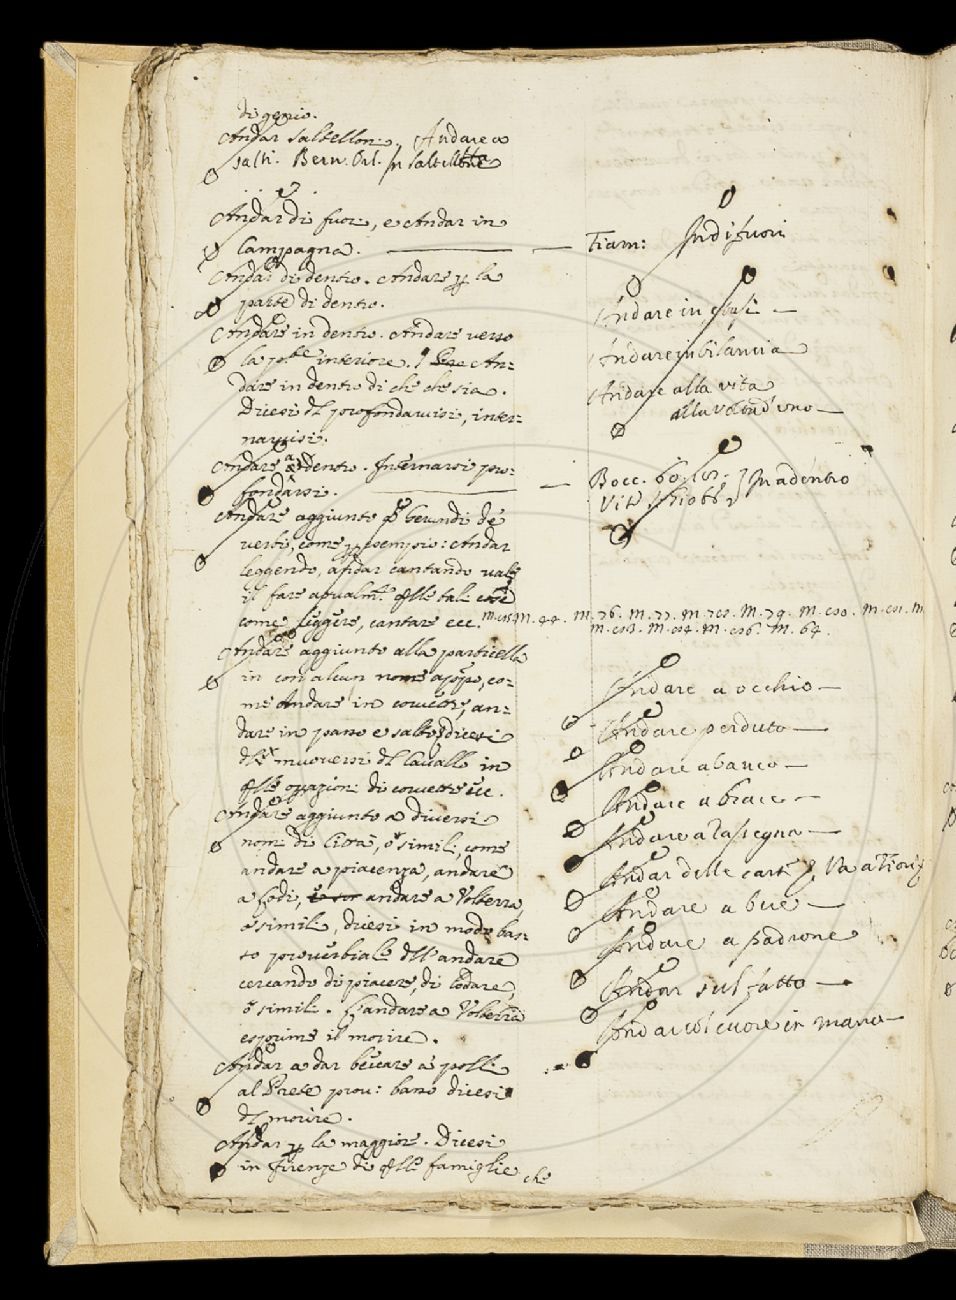 di genio.
Andar saltellon. Andare a
salti. Bern. Orl. In saltellone
Andar di fuori, e Andar in
Campagna. — Fiam: In di fuori
Andar di dentro. Andare p la
parte di dentro.
Andare in dentro. Andare verso
la p.te interiore. An-
dare in dentro di che che sia.
Dicesi di profondarvisi, inter-
narvisi.
Andare a dentro. Internarsi pro-
fondarsi. —
Andare aggiunto a Gerundi de
verbi, come p esempio: Andar
leggendo, andar cantando vale
il fare atualm.te q.lle tale cose
come leggere, cantare ecc.
Andare aggiunto alla particella
in con alcun nome apppo, co-
me Andare in corvette, an-
dare in passo e salto, dicesi
del muoversi del Cavallo in
q.lle operazioni di corvette ecc.
Andare aggiunto a diversi
nomi di Città, o simili, come
andare a piacenza, andare
a Lodi, andare a Volterra,
o simili, dicesi in modo bas-
so proverbiale dell'andare
cercando di piacere, di lodare,
o simili. E andare a Volterra
esprime il morire.
Andar a dar beccare a polli
al Prete prov: basso dicesi
del morire.
Andar p la maggiore. Dicesi
in Firenze di q.lle famiglie
che
Andare in
Andare in bilancia
Andare alla vita
alla vita d'uno —
Bocc. 60.
Vite In adentro
M. 44. M. 76. M. 77. M. M. 79. M. M.
M. M. M. M. 64.
Andare a occhio —
Andare perduto —
Andare a banco —
Andare a brace —
Andare a la segna —
Andar delle carte, Va a Fiori
Andare a bue —
Andare a padrone
Andar sul fatto —
Andar col cuore in mano —